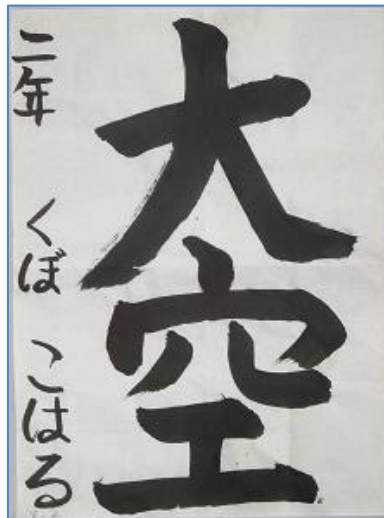 大空
二年 くぼ こはる